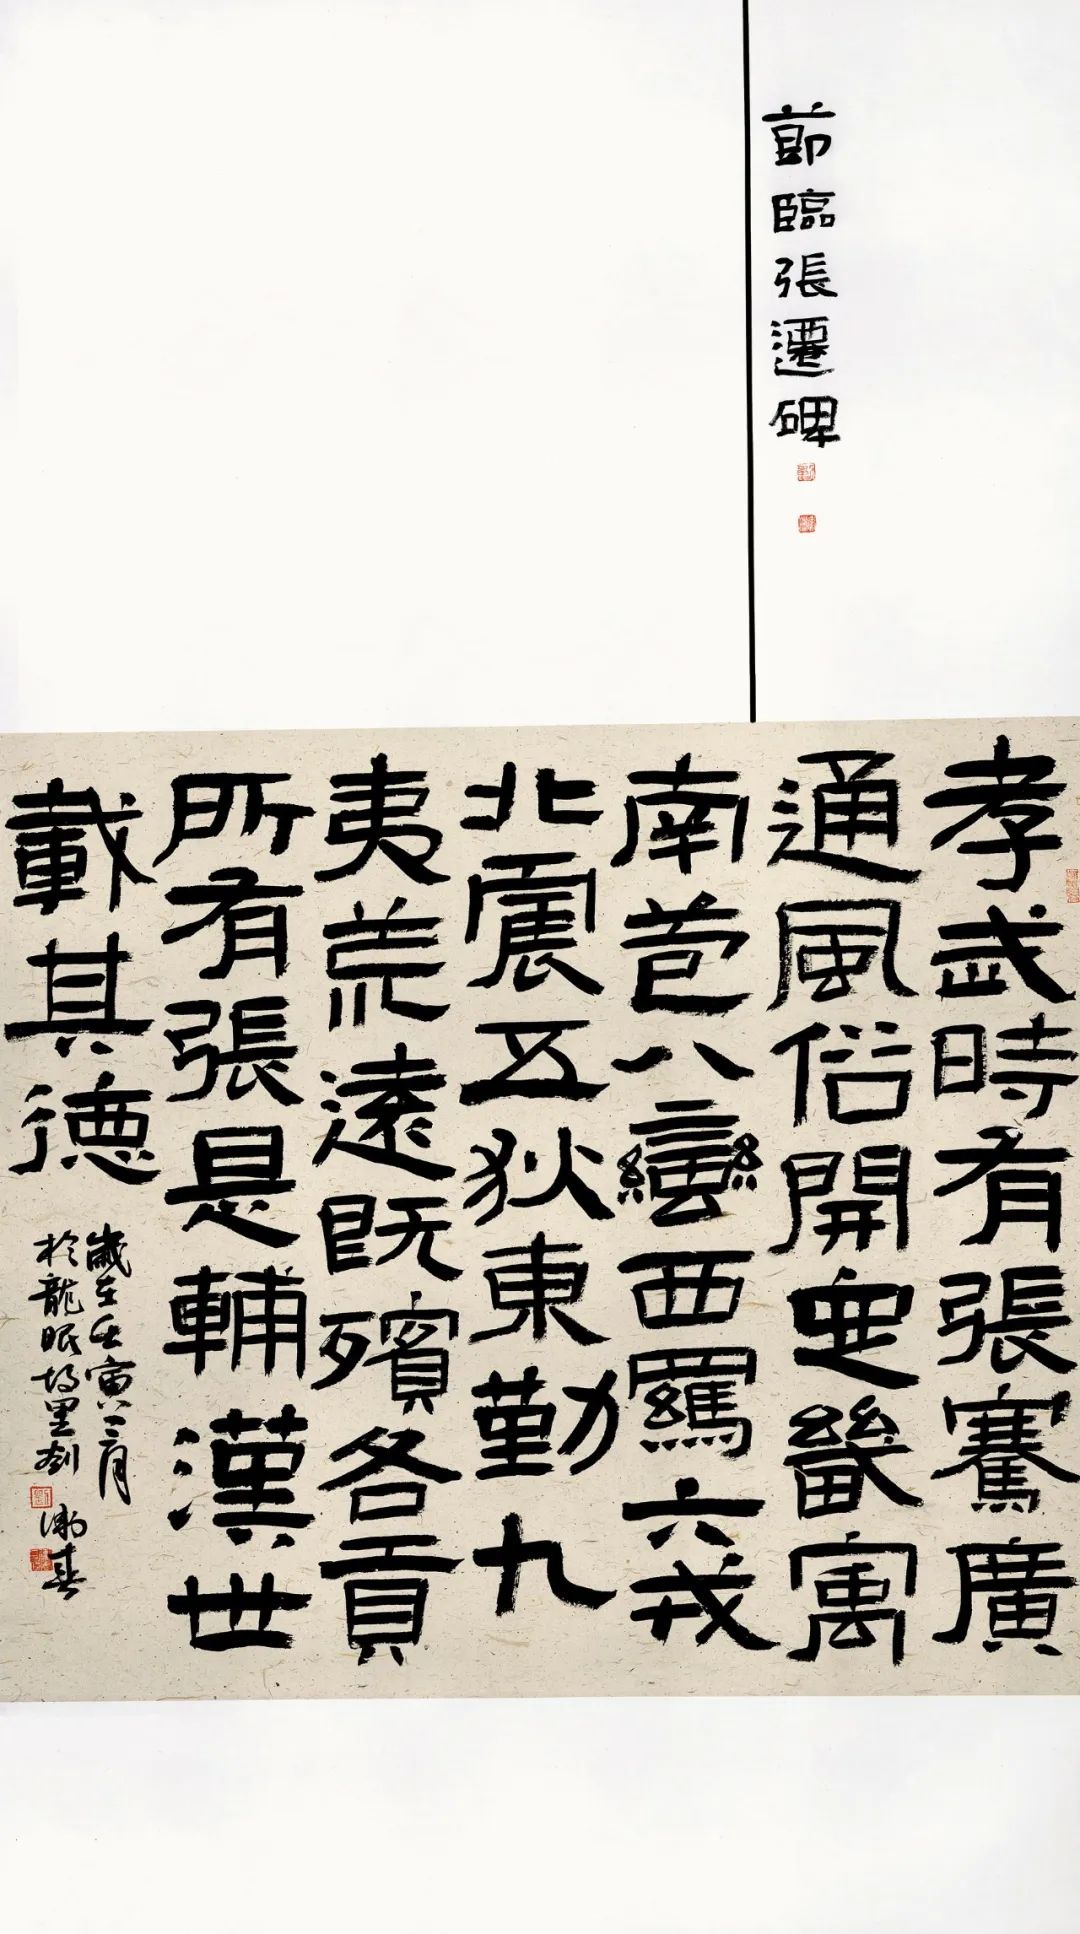 節臨張遷碑
孝武時有張騫廣
通風俗開定畿寓
南苞八蠻西羈六戎
北震五狄東勤九
夷荒遠既殯各貢
所有張是輔漢世
載其德
歲在壬寅三月
於龍眠故里劉